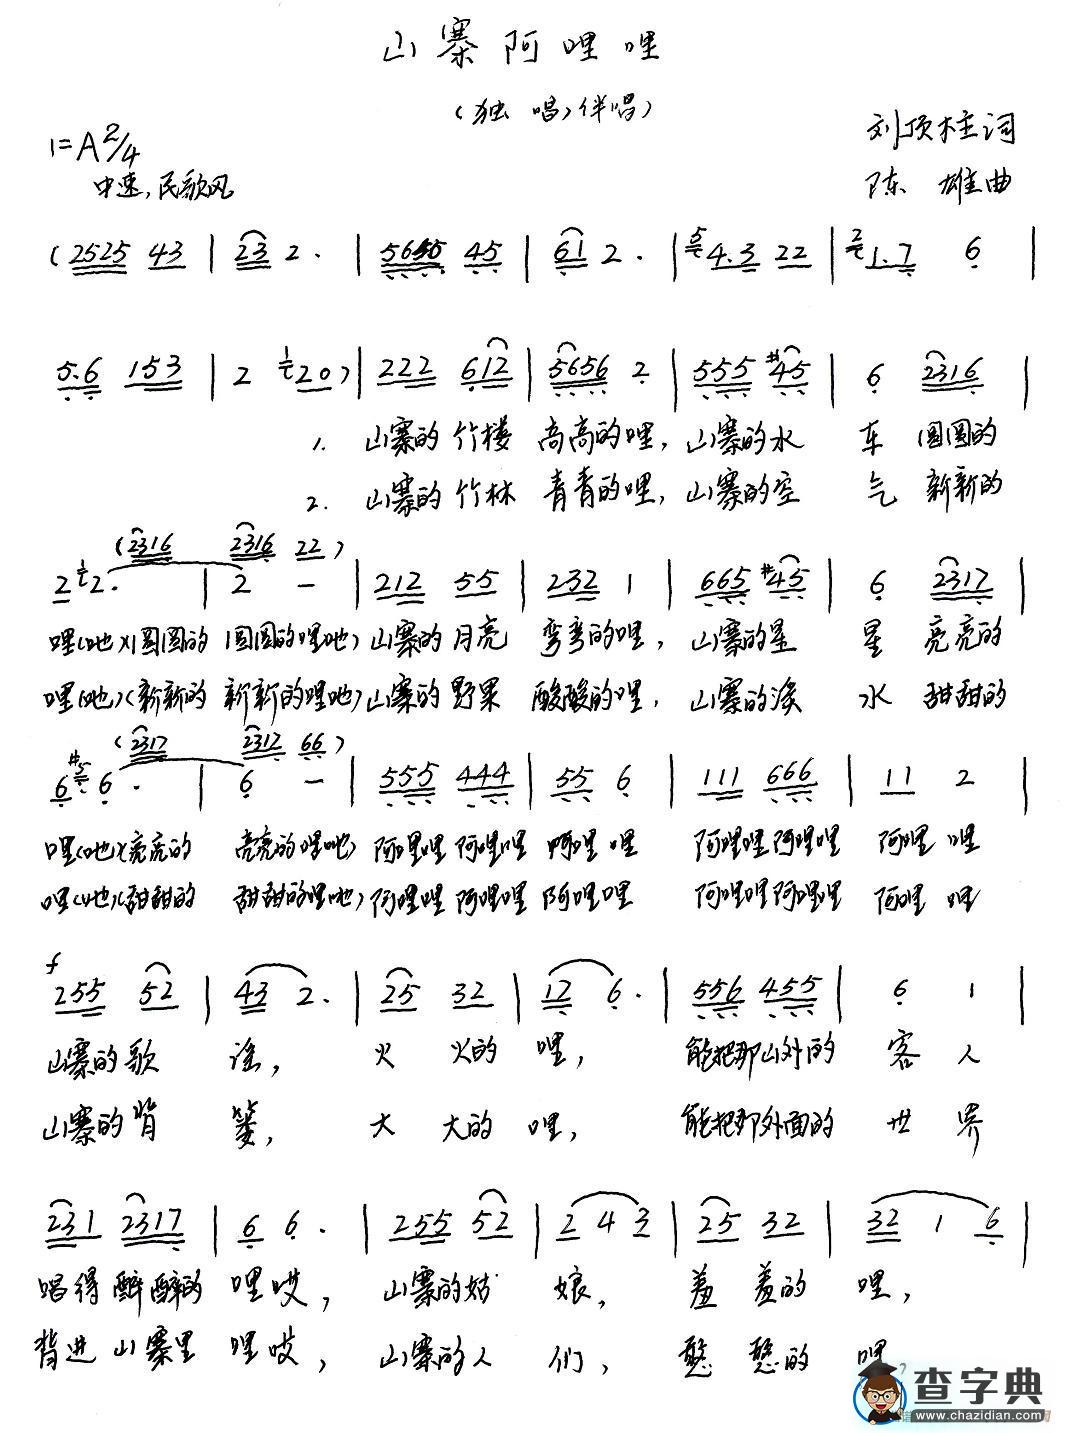 山寨阿哩哩
(独唱、伴唱)
1=A 2/4
刘顶柱词
中速，民歌风
陈雄曲
(2525 43 | 23 2. | 5645 45 | 61 2. | 5 4.3 22 | 2 1.7 6 |
5.6 153 | 2 1 20) | 222 612 | 5656 2 | 555 #45 | 6 2316 |
1. 山寨的竹楼 高高的哩, 山寨的水 车 圆圆的
2. 山寨的竹林 青青的哩, 山寨的空 气 新新的
(2316 2316 22)
2 1 2. | 2 – | 212 55 | 232 1 | 665 #45 | 6 2317 |
哩(吔)(圆圆的 圆圆的哩吔) 山寨的月亮 弯弯的哩, 山寨的星 星 亮亮的
哩(吔)(新新的 新新的哩吔) 山寨的野果 酸酸的哩, 山寨的溪 水 甜甜的
(2317 2312 66)
6 #5 6. | 6 – | 555 444 | 55 6 | 111 666 | 11 2 |
哩(吔)(亮亮的 亮亮的哩吔) 阿哩哩阿哩哩 阿哩哩 阿哩哩阿哩哩 阿哩哩
哩(吔)(甜甜的 甜甜的哩吔) 阿哩哩阿哩哩 阿哩哩 阿哩哩阿哩哩 阿哩哩
f
255 52 | 43 2. | 25 32 | 12 6. | 556 455 | 6 1 |
山寨的歌 谣, 火 火的 哩, 能把那山外的 客 人
山寨的背 篓, 大 大的 哩, 能把那外面的 世 界
231 2317 | 6 6. | 255 52 | 2 4 3 | 25 32 | 32 1 6 |
唱得醉醉的 哩哎, 山寨的姑 娘, 羞 羞的 哩,
背进山寨里 哩哎, 山寨的人 们, 憨 憨的 哩
查字典
www.chazidian.com